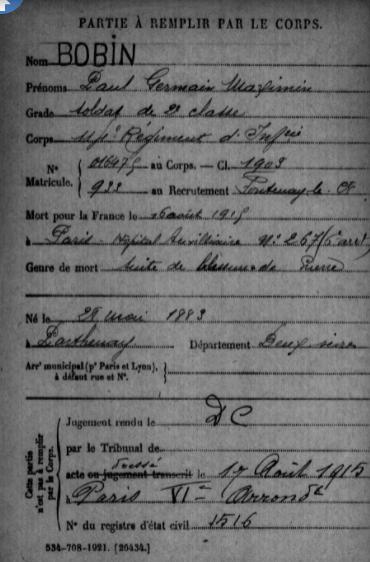 PARTIE À REMPLIR PAR LE CORPS.
Nom BOBIN
Prénoms Paul Germain Maximin
Grade soldat de 2e classe
Corps Régiment d'Infrie
N° Matricule. au Corps. — Cl. 1903
933 au Recrutement Fontenay le Cte
Mort pour la France le 16 août 1915
à Paris - Hôpital Auxilliaire N° 267 (6e arrt)
Genre de mort suite de blessures de guerre
Né le 28 mai 1883
à Parthenay Département Deux sèvres
Arrt municipal (pr Paris et Lyon),
à défaut rue et N°.
Cette partie n'est pas à remplir par le Corps.
Jugement rendu le DC
par le Tribunal de
dressé
acte ou jugement transcrit le 17 Août 1915
à Paris VIe Arrondt
N° du registre d'état civil 1516
534-708-1921. [26434.]